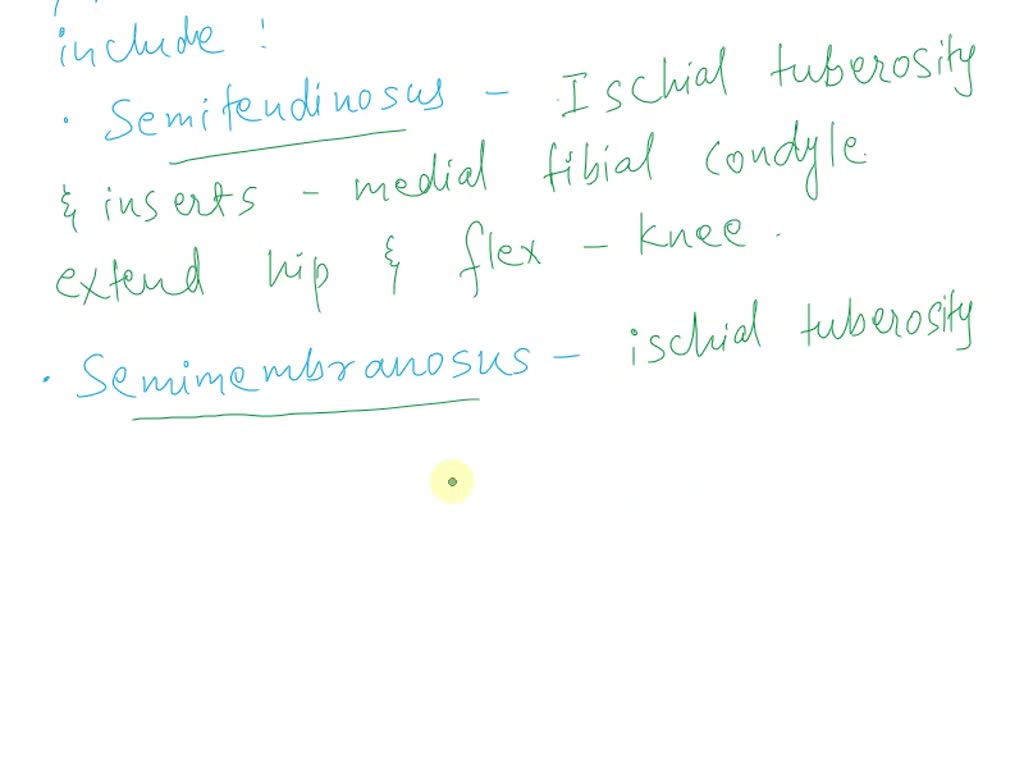 include :
· Semitendinosus - Ischial tuberosity
& inserts - medial tibial condyle
extend hip & flex - knee .
· Semimembranosus - ischial tuberosity